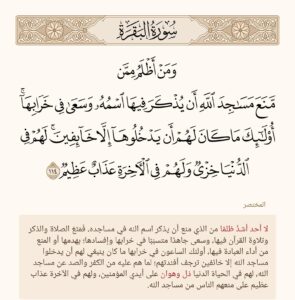 سُورَةُ البَقَرَةِ
وَمَنْ أَظْلَمُ مِمَّن
مَّنَعَ مَسَٰجِدَ ٱللَّهِ أَن يُذْكَرَ فِيهَا ٱسْمُهُۥ وَسَعَىٰ فِي خَرَابِهَآۚ
أُو۟لَٰٓئِكَ مَا كَانَ لَهُمْ أَن يَدْخُلُوهَآ إِلَّا خَآئِفِينَۚ لَهُمْ فِي
ٱلدُّنْيَا خِزْيٌ وَلَهُمْ فِي ٱلْأٓخِرَةِ عَذَابٌ عَظِيمٌ ١١٤
المختصر
لا أحد أشدّ ظلمًا من الذي منع أن يذكر اسم الله في مساجده، فمنع الصلاة والذكر
وتلاوة القرآن فيها، وسعى جاهدًا متسببًا في خرابها وإفسادها؛ بهدمها أو المنع
من أداء العبادة فيها، أولئك الساعون في خرابها ما كان ينبغي لهم أن يدخلوا
مساجد الله إلا خائفين ترجف أفئدتهم؛ لما هم عليه من الكفر والصد عن مساجد
الله، لهم في الحياة الدنيا ذل وهوان على أيدي المؤمنين، ولهم في الآخرة عذاب
عظيم على منعهم الناس من مساجد الله.